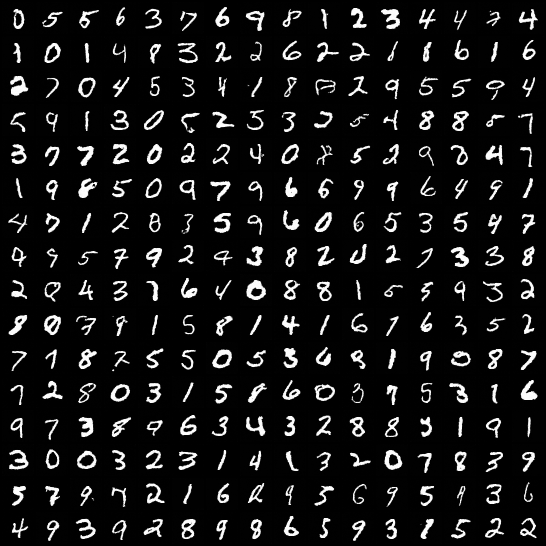 0 5 5 6 3 7 6 9 8 1 2 3 4 4 7 4
1 0 1 4 8 3 2 2 6 2 2 1 8 6 1 6
2 7 0 4 5 3 4 1 8 2 9 5 5 9 4
5 9 1 3 0 5 2 5 3 2 5 4 8 8 5 7
3 7 7 2 0 2 2 4 0 8 5 2 9 8 4 7
1 9 8 5 0 9 7 9 6 6 9 9 6 4 9 1
4 7 1 2 8 3 5 9 6 0 6 5 3 5 4 7
9 9 5 7 9 2 9 3 8 2 0 2 7 3 3 8
2 8 4 3 7 6 4 0 8 8 1 5 5 9 3 2
8 0 7 9 1 5 8 1 4 1 6 7 6 3 5 2
7 7 8 2 5 5 0 5 3 6 9 1 9 0 8 7
7 2 8 0 3 1 5 8 6 0 3 7 5 3 1 6
9 7 3 8 9 6 3 4 3 2 8 8 5 1 9 1
3 0 0 3 2 3 1 4 1 3 2 0 7 8 3 9
5 7 9 7 2 1 6 2 9 5 6 9 5 9 3 6
4 9 3 9 2 8 9 8 6 5 9 3 1 5 2 2